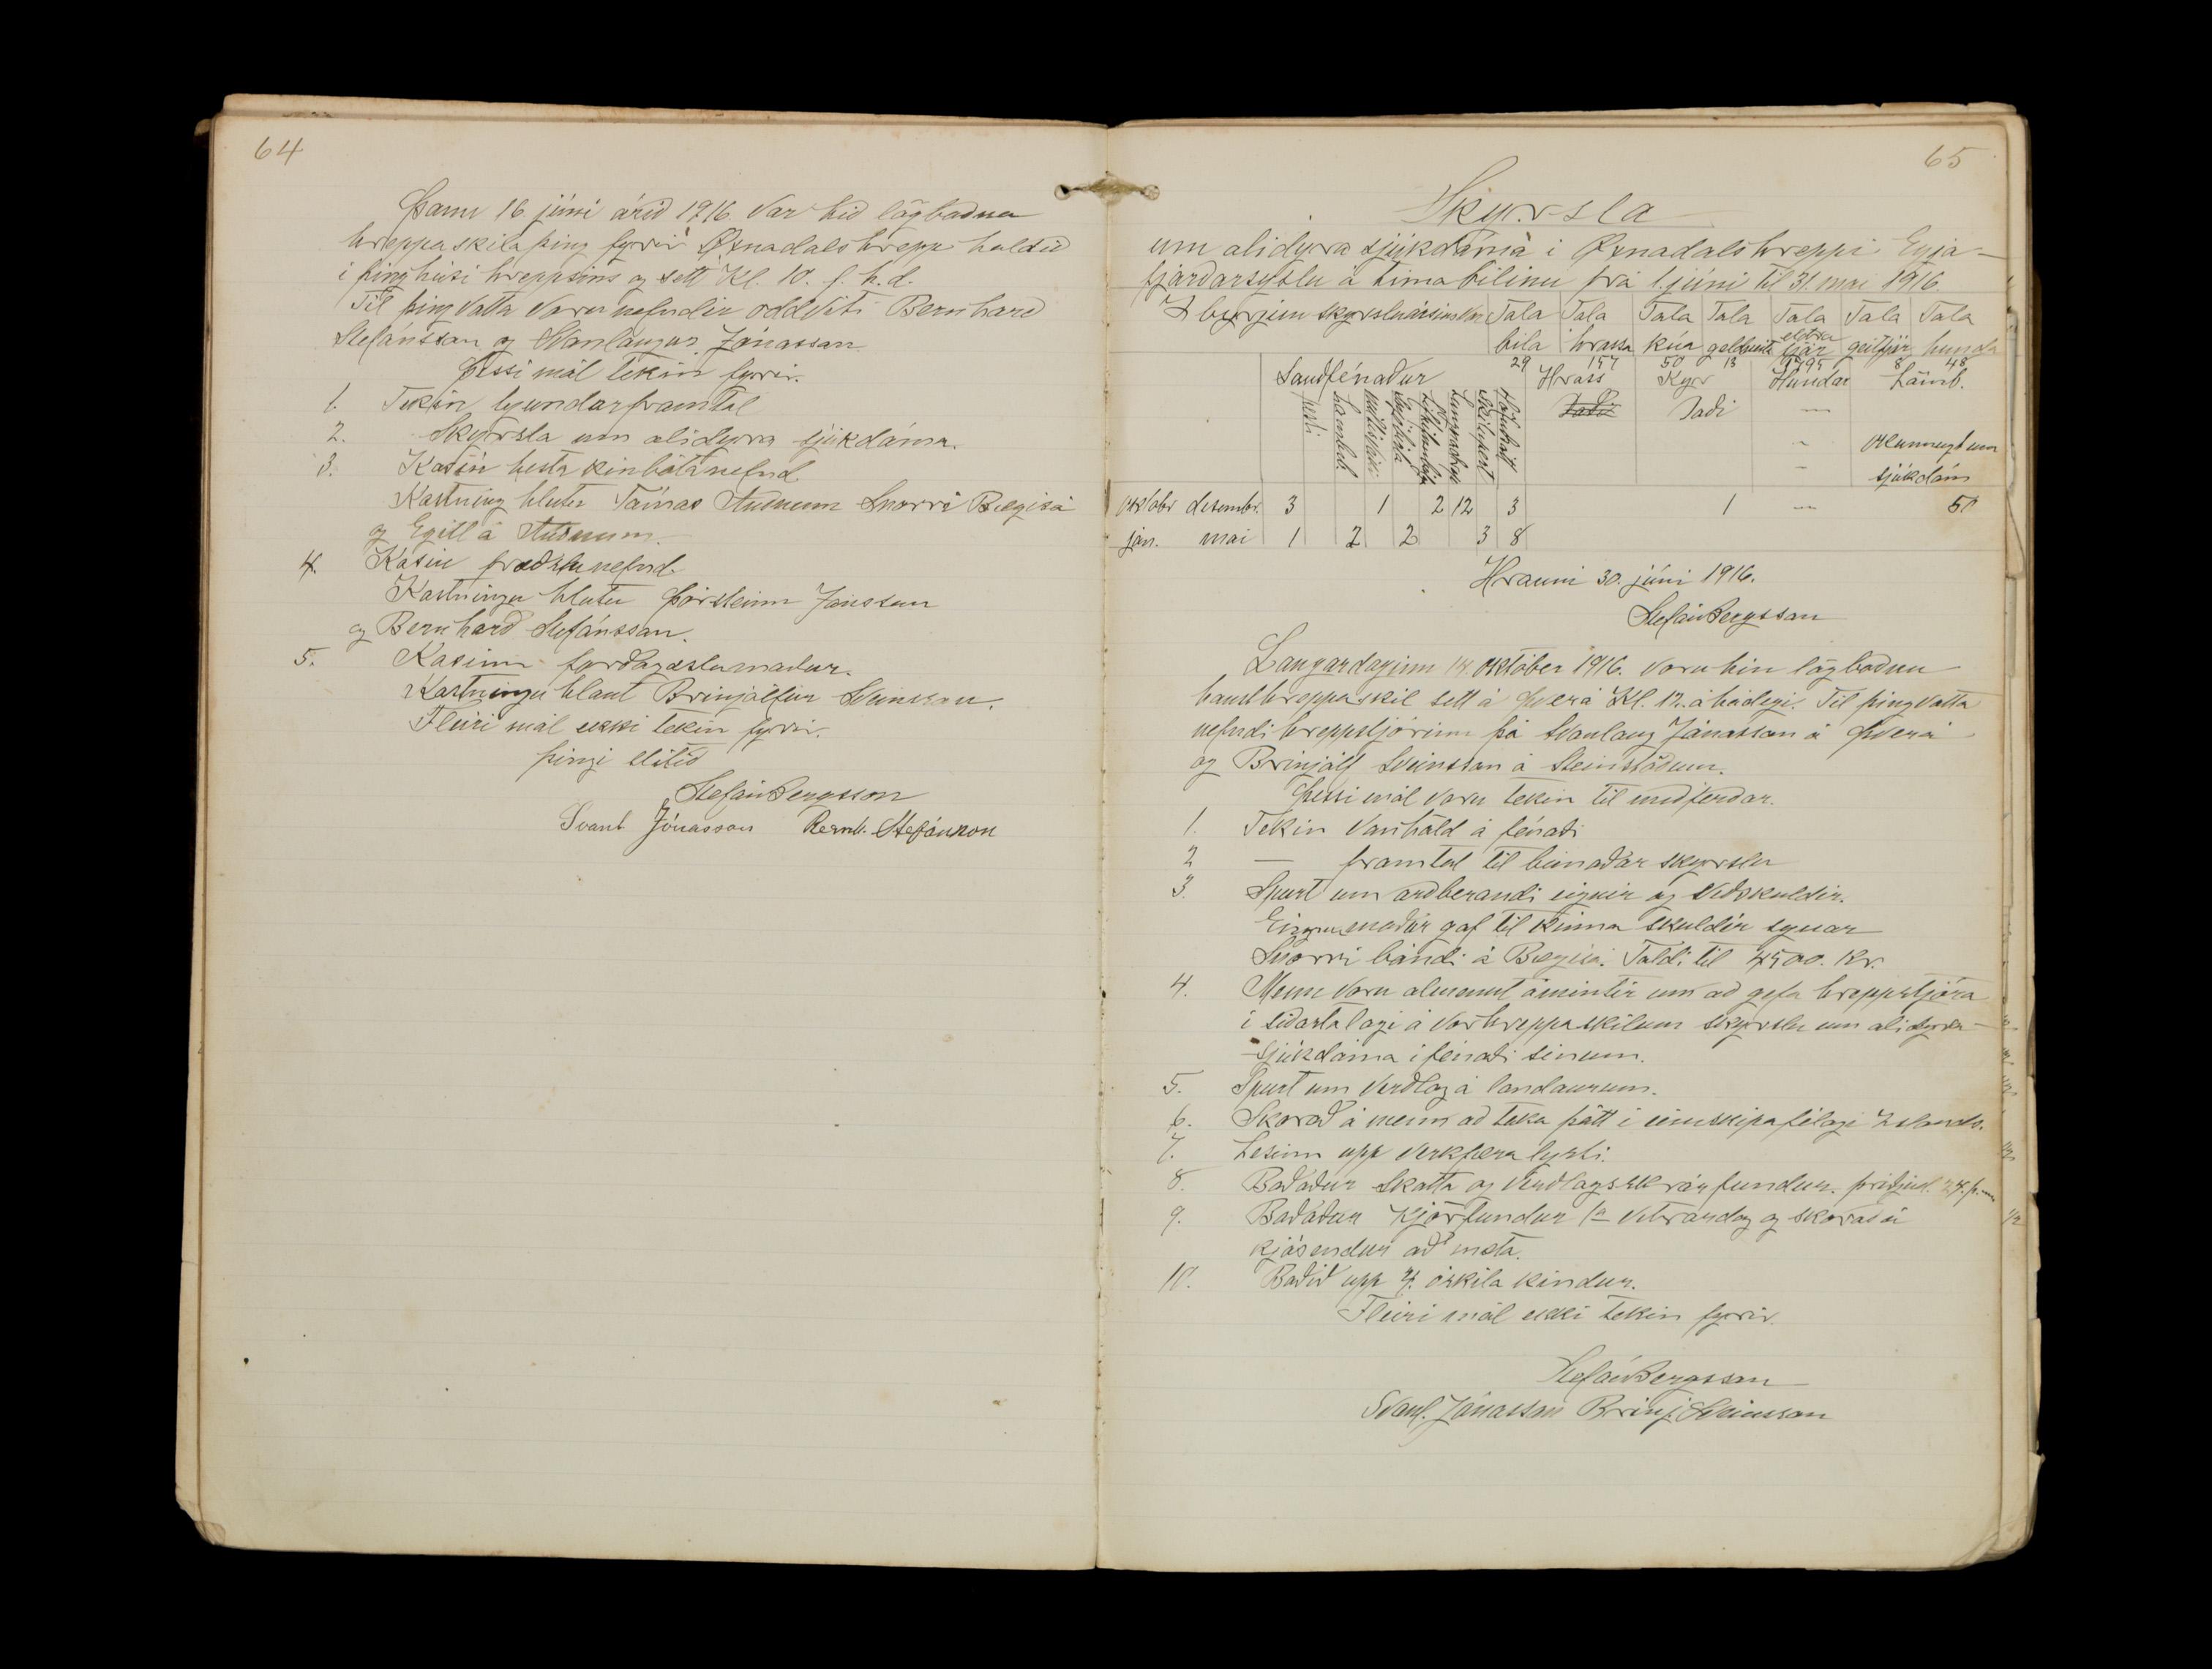 64
Þann 16 júni árið 1916 var hið lögboðna
hreppaskilaþing fyrir Øxnadalshrepp haldið
i þinghúsi hreppsins og sett kl. 10. f. h. d.
Til þingvotta voru nefndir oddviti Bernharð
Stefánsson og Svanlaugur Jónasson
Þessi mál tekin fyrir.
1. Tekin tyundarframtal
2. Skyrsla um alidyra sjúkdóma.
3. Kosin hesta kinbótanefnd
Kosning hlutu Tómas Auðnum Snorri Bægisá
og Egill á Auðnum.
4. Kosin fræðslunefnd
Kosningu hlutu Þórsteinn Jónsson
og Bernharð Stefánsson.
5. Kosinn forðagæslumaður.
Kosningu hlaut Brinjólfur Sveinsson.
Fleiri mál ekki tekin fyrir.
þingi slitið
Stefán Bergsson
Svanl. Jónasson Bernh. Stefánsson
65
Skyrsla
um alidyra sjúkdóma i Øxnadalshreppi Eyja-
fjarðarsyslu á timabilinu frá 1. júni til 31. mai 1916.
I byrjun skyrsluársins var Tala Tala Tala Tala Tala Tala Tala
búa hrossa kúa geldneita eldra fjár geitfjár hunda
29 157 50 13 1795 8 48
Sauðfénaður Hross Kyr Hundar Lömb.
pesti Lambab. Höfuðsótt Doði Doði —
Ókunnugt um
sjúkdóm
október desembr. 3 1 2 12 3 1 — 50
jan. mai 1 2 2 3 8
Hrauni 30. júni 1916.
Stefán Bergsson
Laugardaginn 14. október 1916. voru hin lögboðnu
hausthreppaskil sett á Þverá Kl. 12. á hádegi. Til þingvotta
nefndi hreppstjórinn þá Svanlaug Jónasson á Þverá
og Brinjólf Sveinsson á Steinstöðum.
Þessi mál voru tekin til meðferðar.
1. Tekin vanhöld á fénaði
2 — framtal til búnaðar skyrslu
3. Spurt um arðberandi eignir og veðskuldir.
Einn maður gaf til kinna skuldir synar
Snorri bóndi á Bægisá. Taldi til 4500. kr.
4. Menn voru almennt ámintir um að gefa hreppstjóra
i siðastalagi á vorhreppaskilum skyrslu um alidyra-
sjúkdóma i fénaði sinum.
5. Spurt um verðlag á landaurum.
6. Skorað á menn að taka þátt i eimskipafélagi Islands.
7. Lesinn upp verkfæra lysti.
8. Boðaður skatta og verðlagsskrárfundur. þriðjud. 24. þ. m
9. Boðaður kjörfundur 1a vetrardag og skorað á
kjósendur að mæta.
10. Boðið upp 4 óskila kindur.
Fleiri mál ekki tekin fyrir.
Stefán Bergsson
Svanl. Jónasson Brinj. Sveinsson